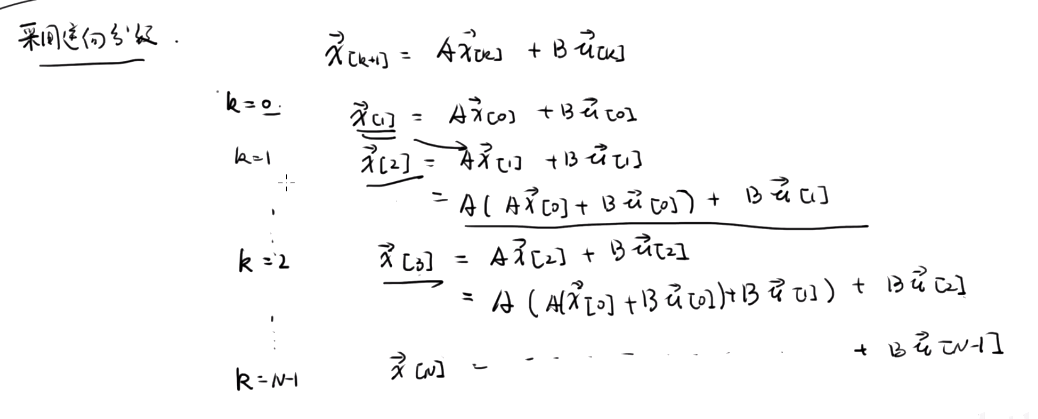 采用逆向分级.
x⃗[k+1] = Ax⃗[k] + Bu⃗[k]
k=0. x⃗[1] = Ax⃗[0] + Bu⃗[0]
k=1 x⃗[2] = Ax⃗[1] + Bu⃗[1]
= A(Ax⃗[0] + Bu⃗[0]) + Bu⃗[1]
k=2 x⃗[3] = Ax⃗[2] + Bu⃗[2]
= A(A(x⃗[0] + Bu⃗[0]) + Bu⃗[1]) + Bu⃗[2]
k=N-1 x⃗[N] = - - - - - - - + Bu⃗[N-1]